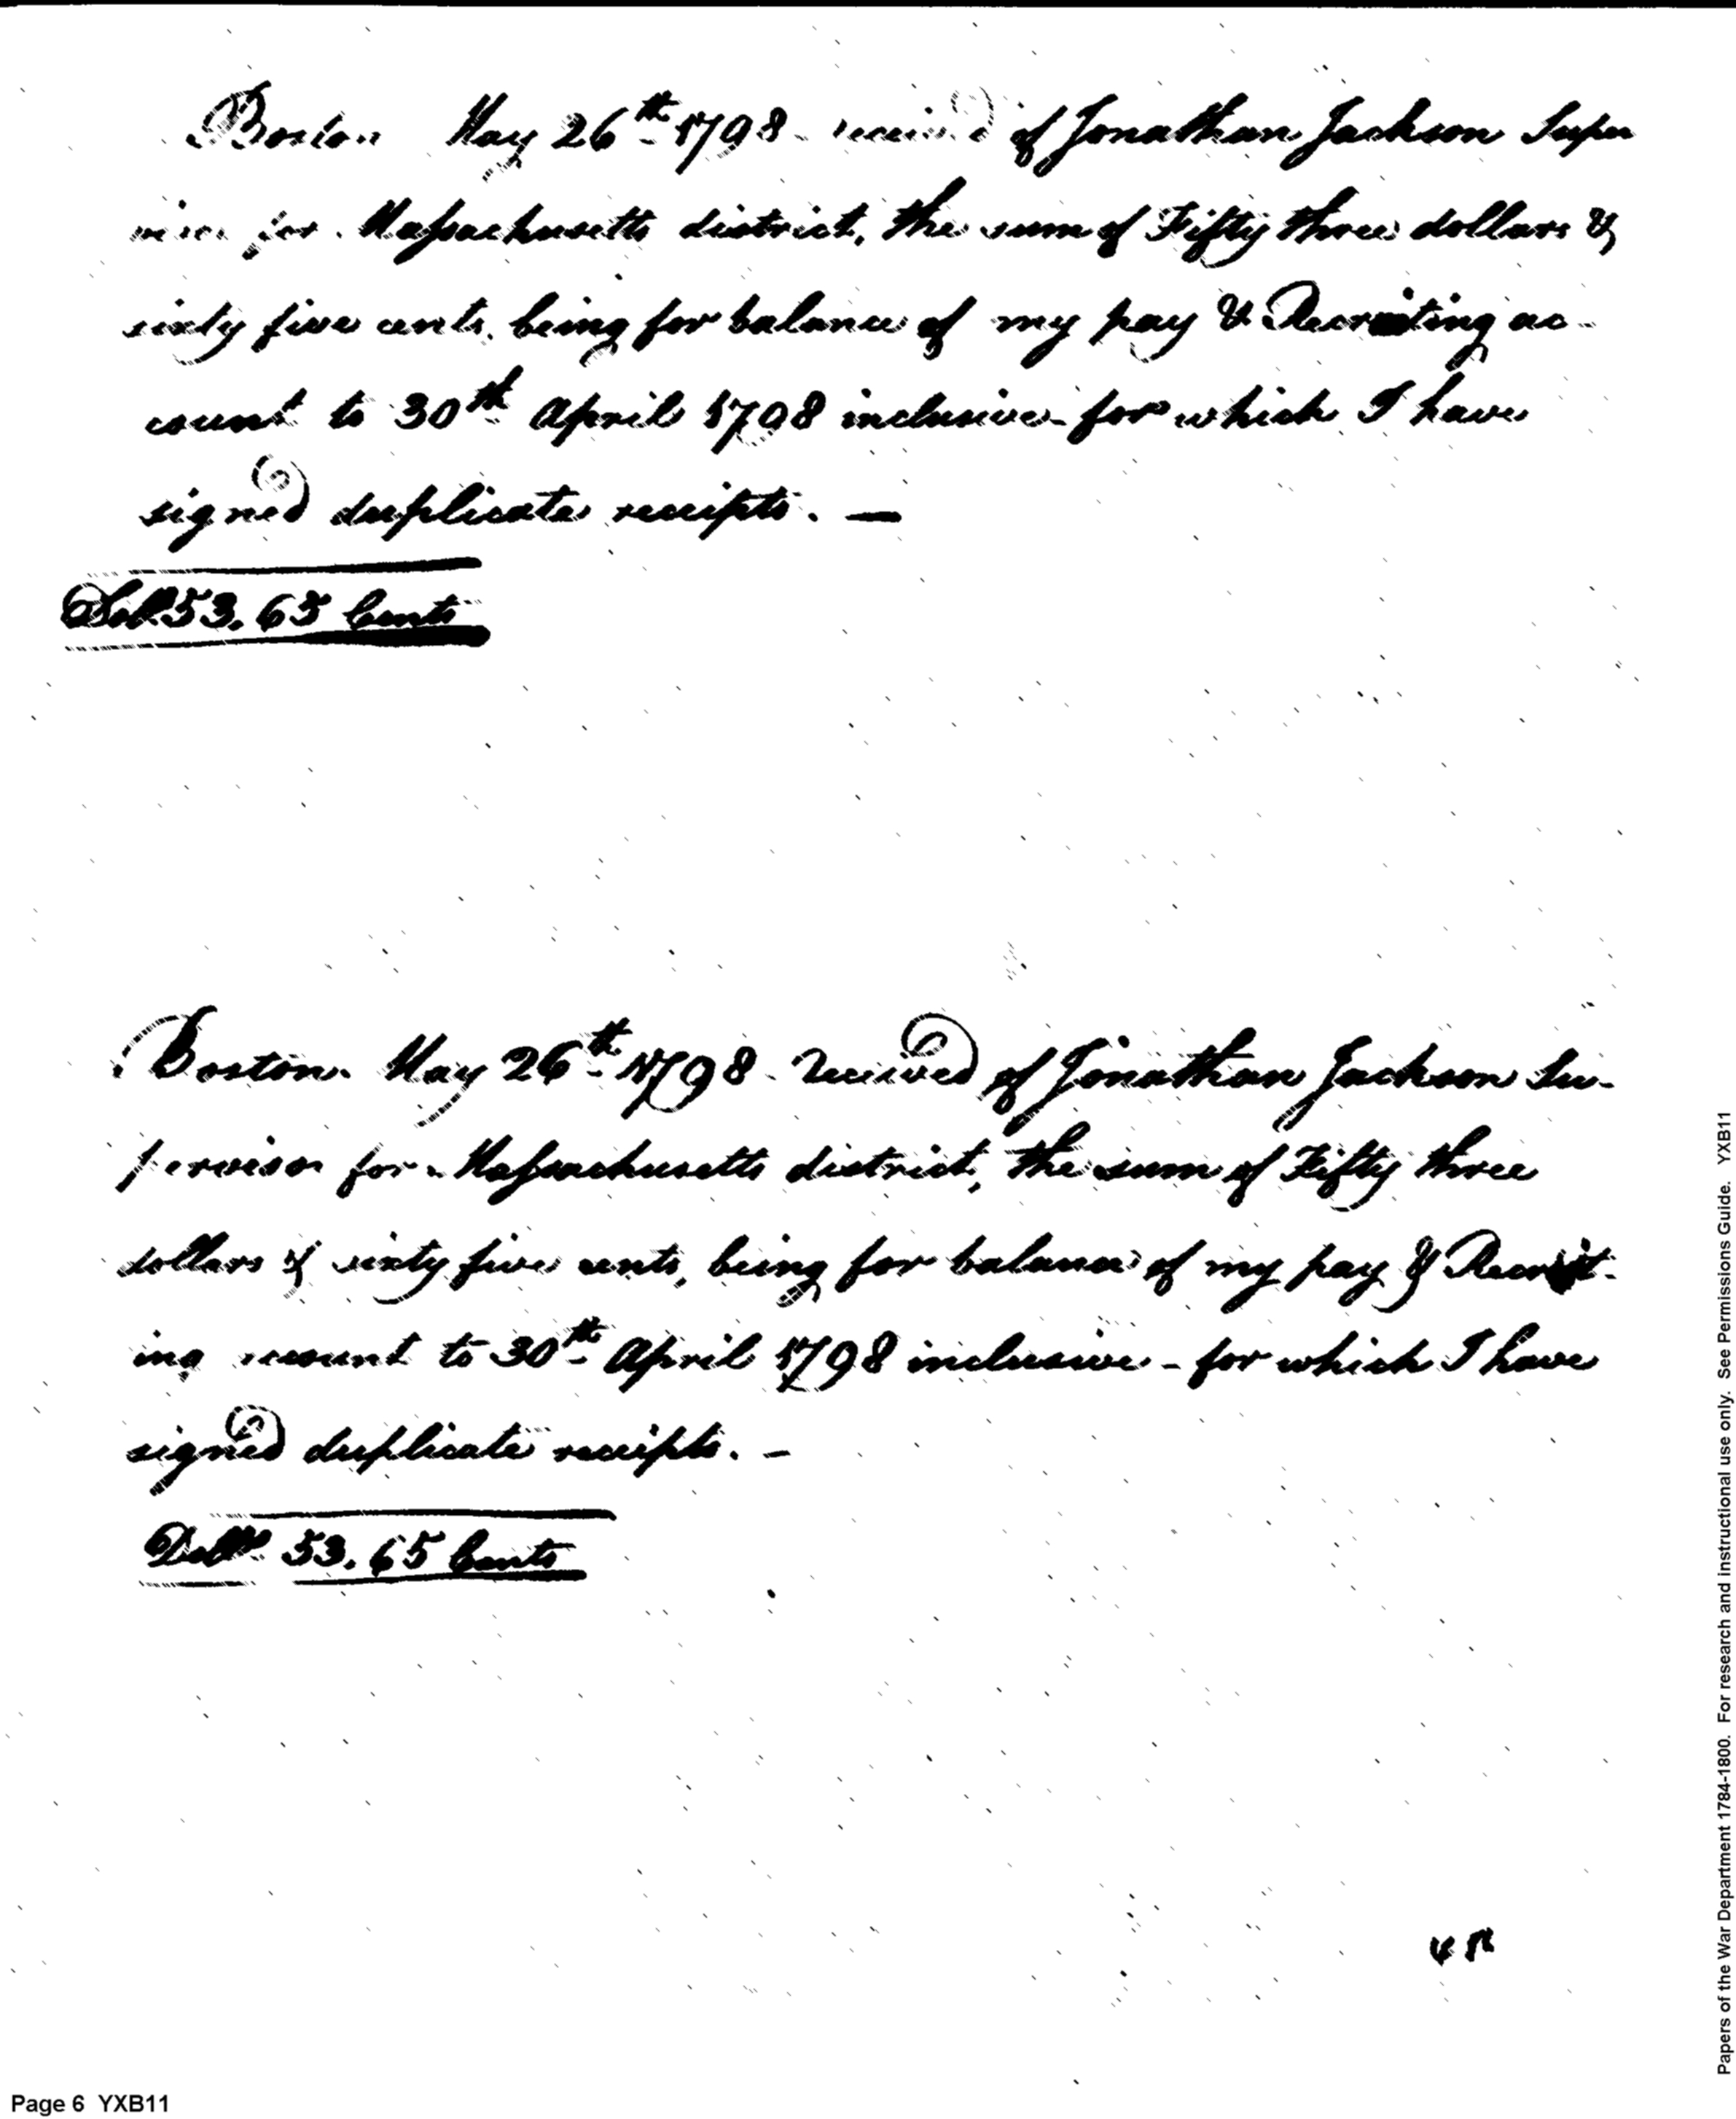 Boston May 26th 1798 received of Jonathan Jackson Super
visor for Massachusetts district, the sum of Fifty three dollars &
sixty five cents, being for balance of my pay & Recruiting ac-
count to 30th April 1798 inclusive - for which I have
signed duplicate receipts. —
Doll. 53. 65 Cents
Boston May 26th 1798 - Received of Jonathan Jackson Su-
pervisor for Massachusetts district, the sum of Fifty three
dollars & sixty five cents, being for balance of my pay & Recruit-
ing account to 30th April 1798 inclusive - for which I have
signed duplicate receipts. -
Dolls. 53. 65 Cents
Page 6 YXB11
Papers of the War Department 1784-1800. For research and instructional use only. See Permissions Guide. YXB11